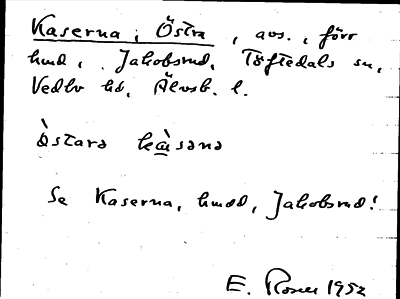 Kaserna, Östra, avs., förr
hmd, Jakobsrud, Töftedals sn,
Vedbo hd, Älvsb. l.
òstarə kàsənə
Se Kaserna, hmd, Jakobsrud!
E. Rosen 1952